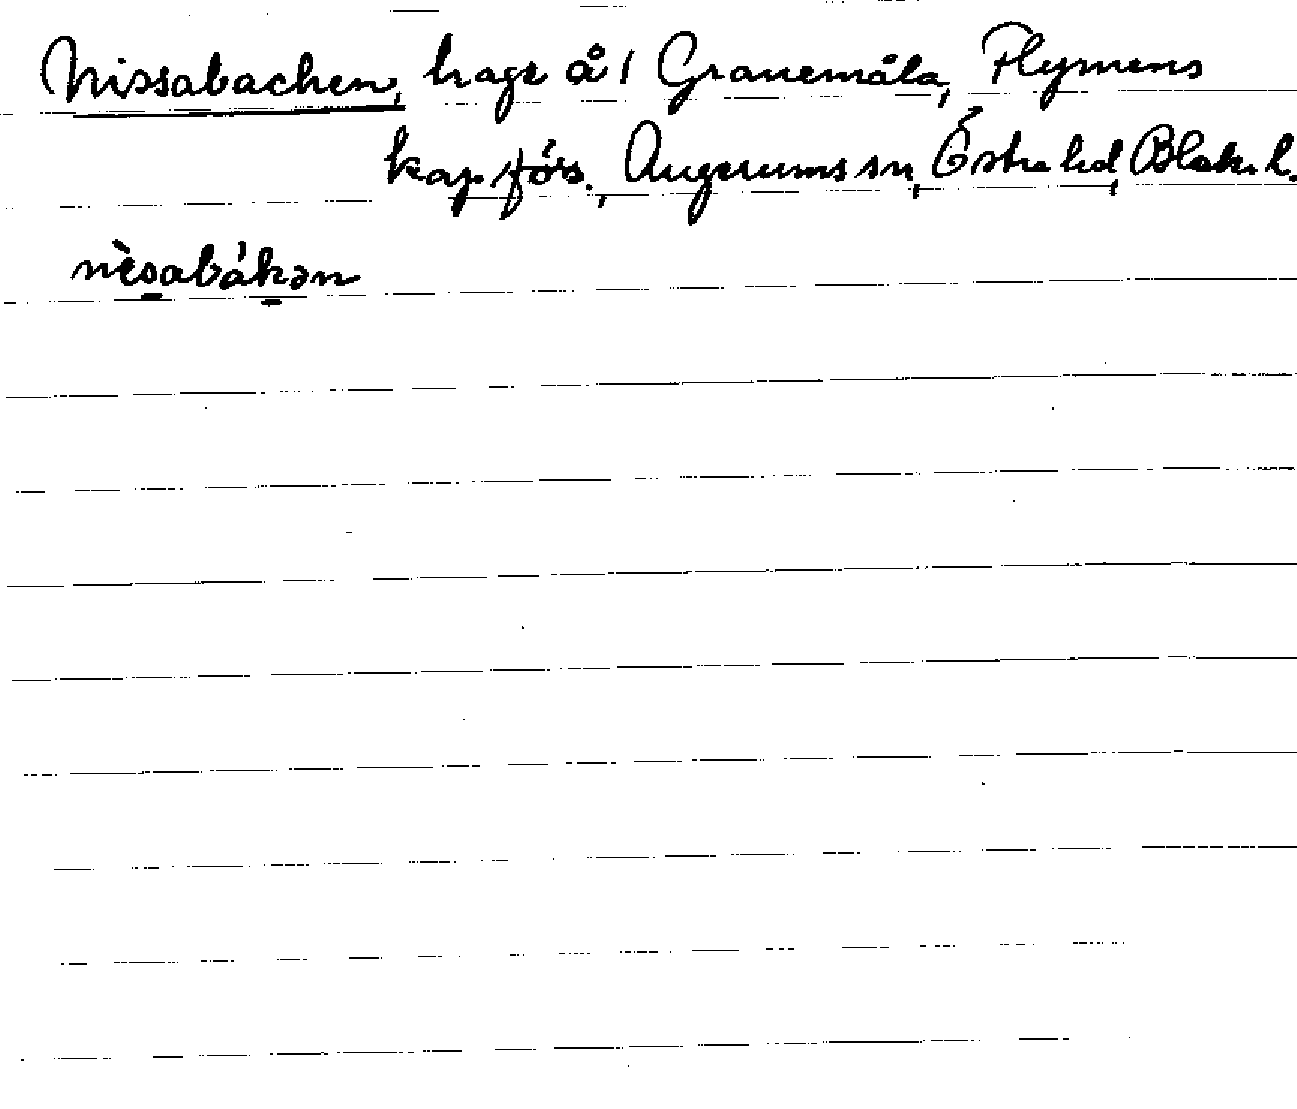 Nissabacken, hage å 1 Granemåla, Flymens
kap.förs., Augerums sn, Östra hd, Blek. l.
nèsabákən